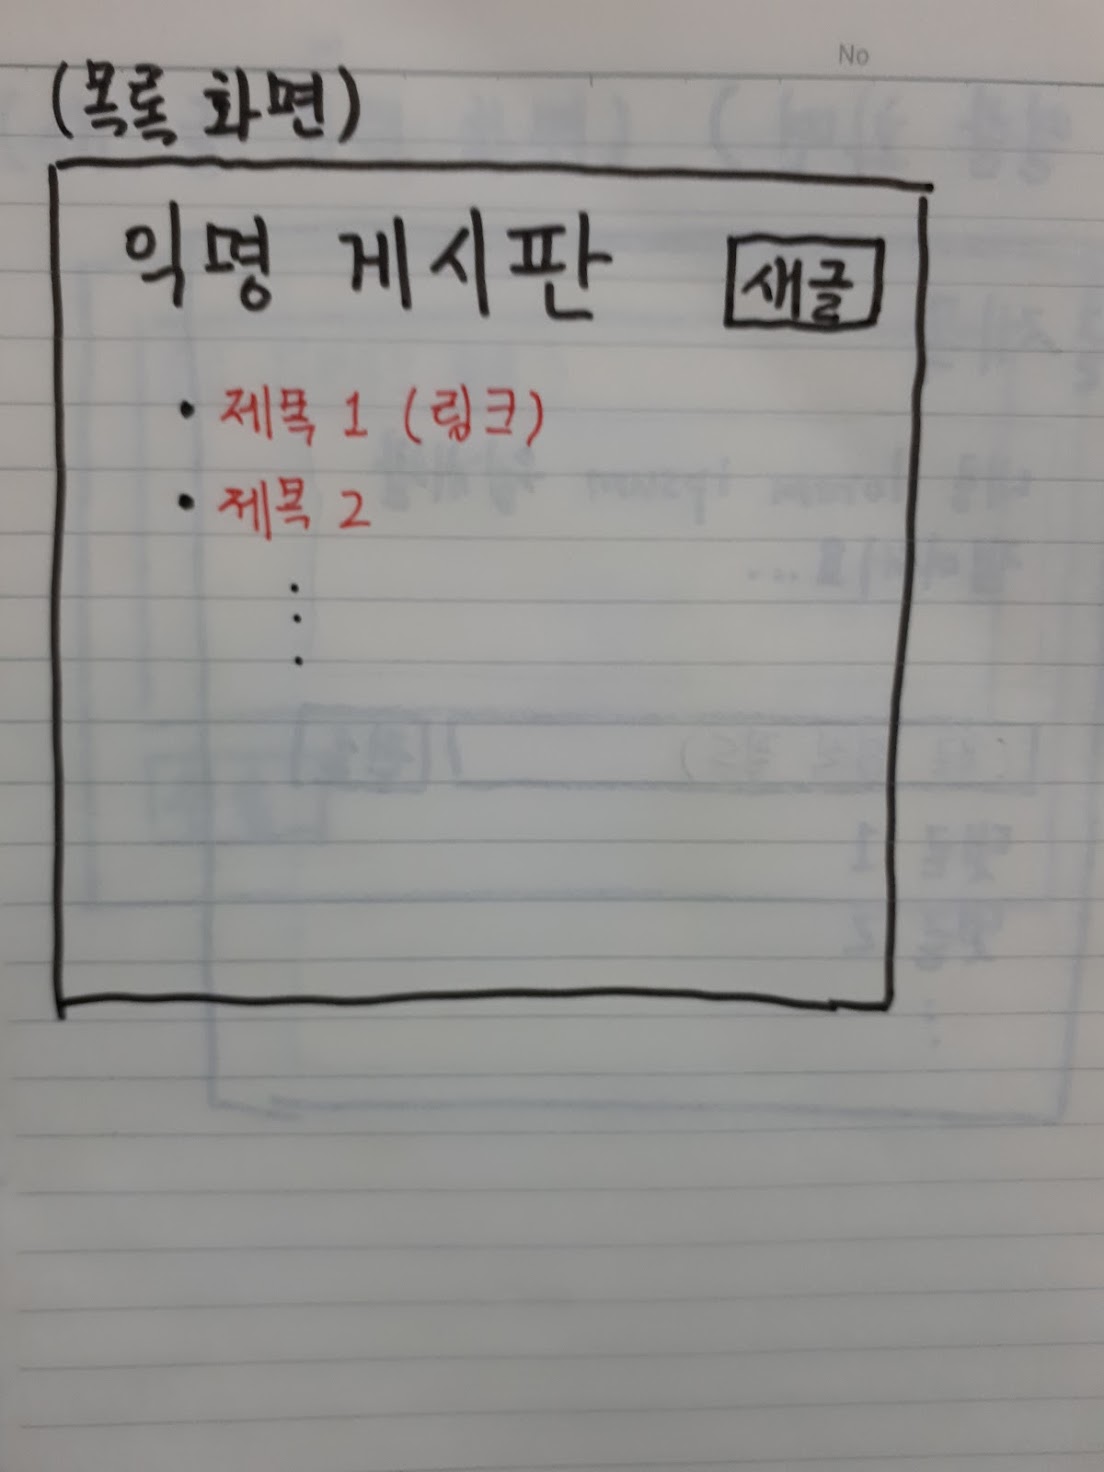 No
(목록 화면)
익명 게시판 새글
• 제목 1 (링크)
• 제목 2
⋮